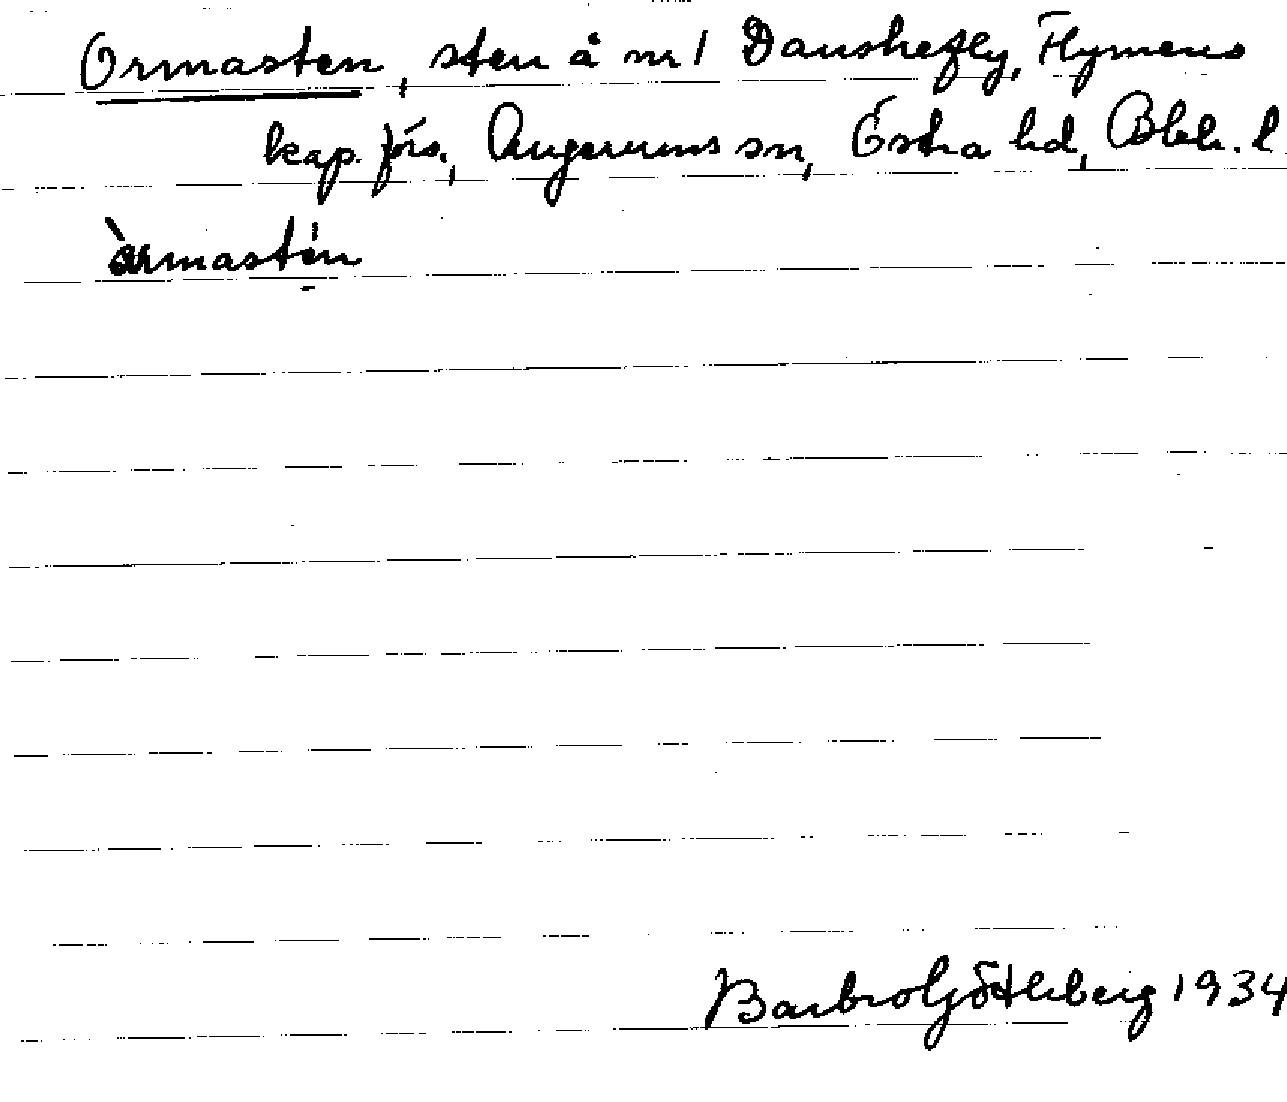 Ormasten, sten å nr 1 Danskefly, Flymens
kap. förs., Augerums sn, Östra hd, Blek. l
àrmastén
Barbro Götleberg 1934